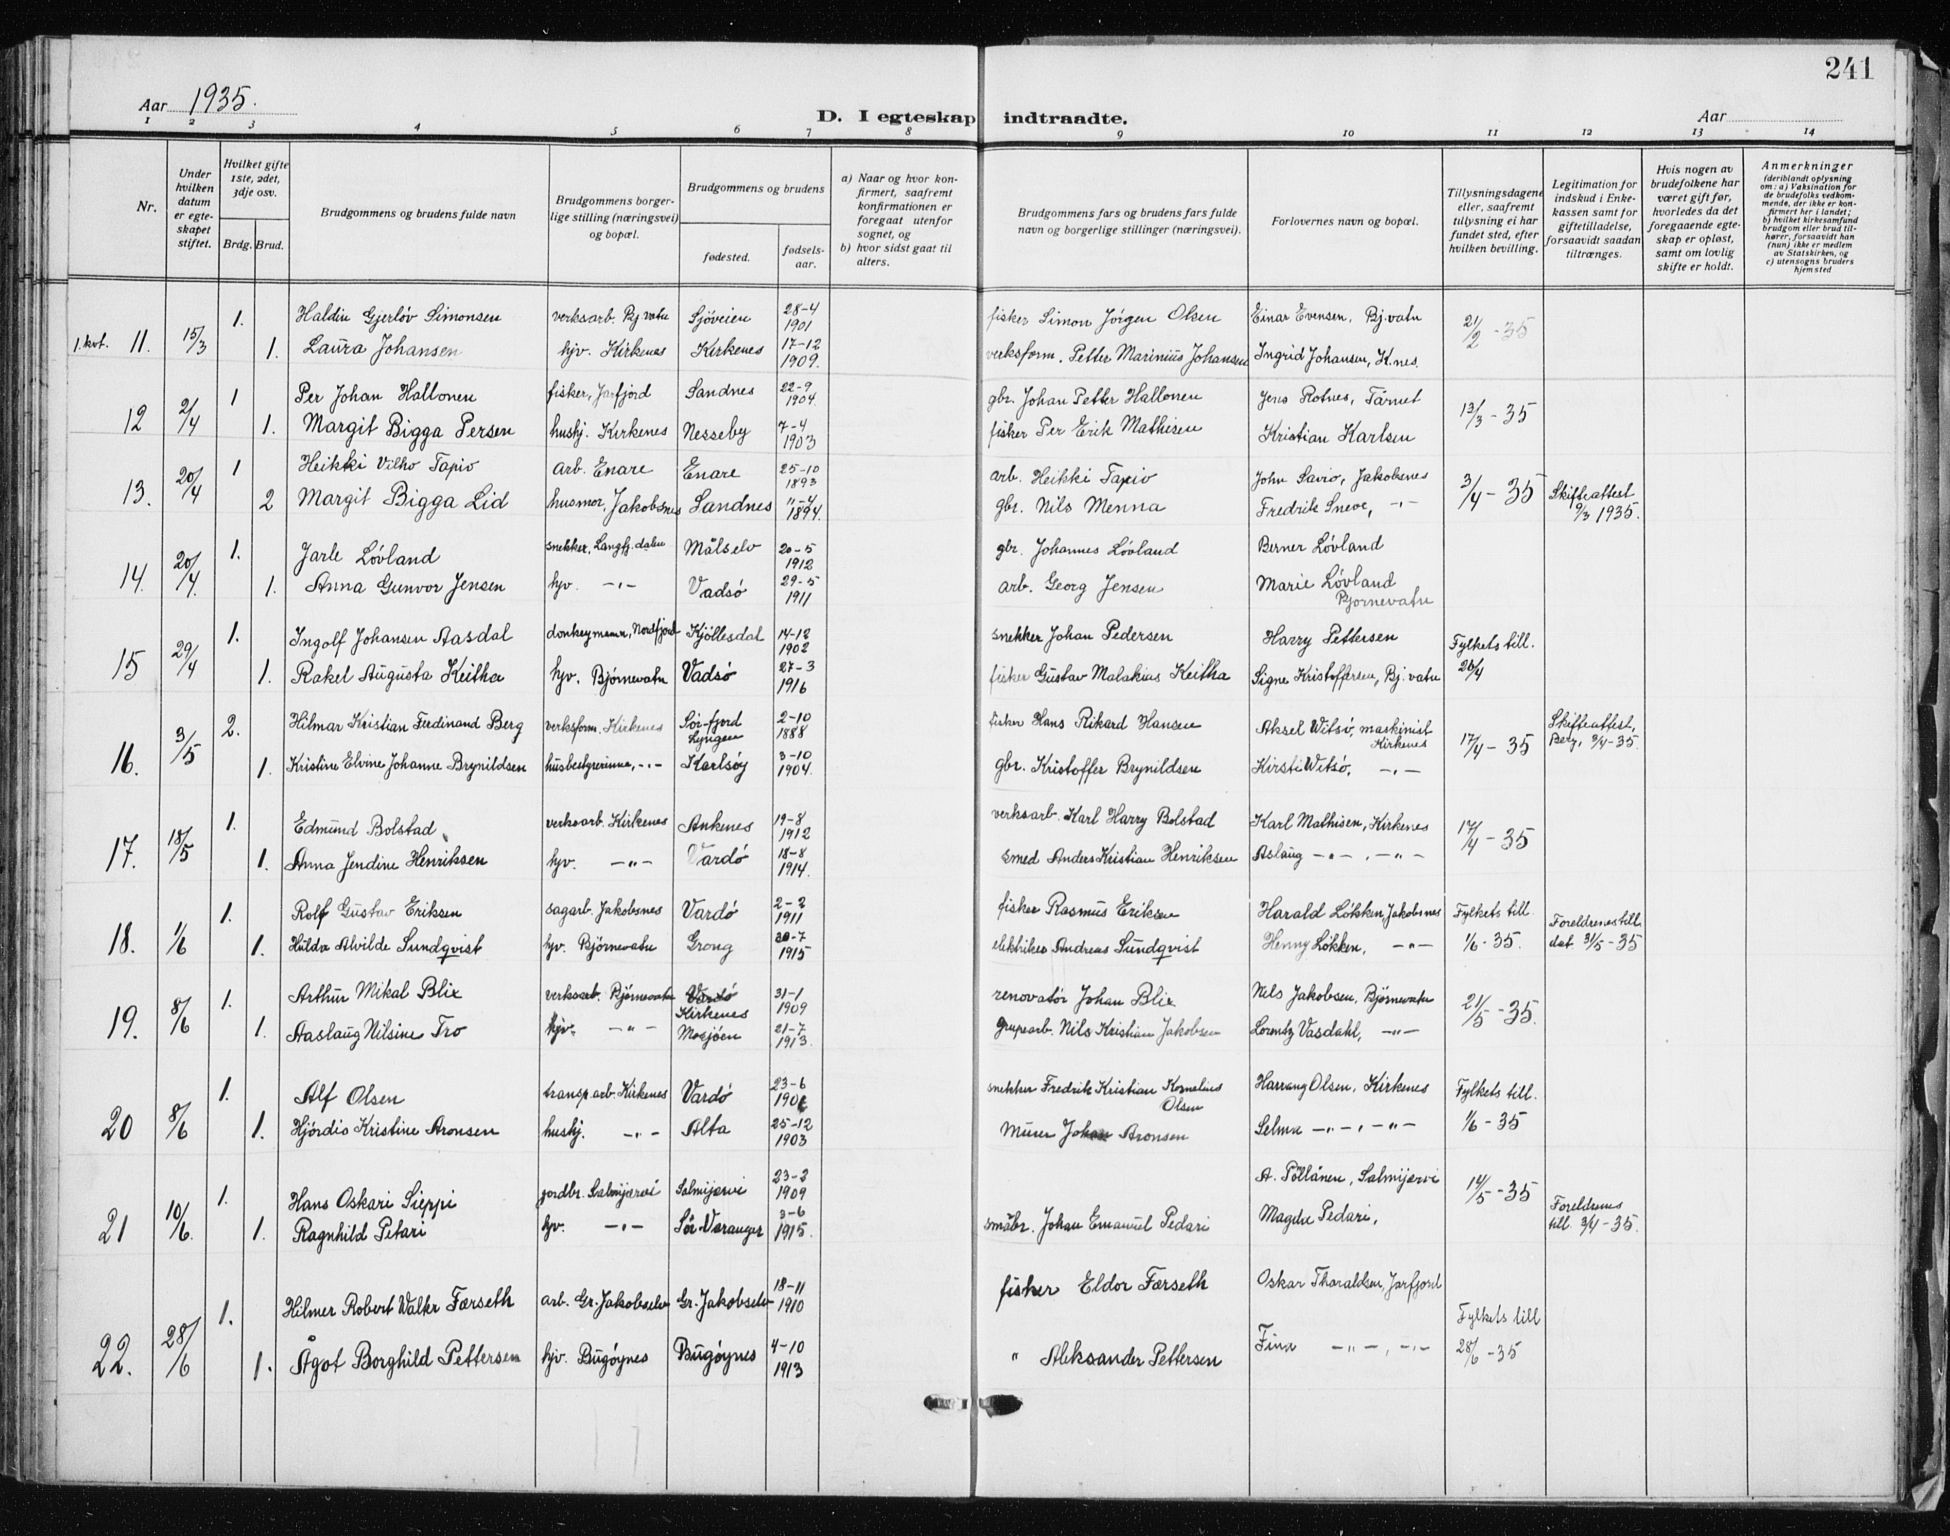 241
Aar 1935.
D. I egteskap indtraadte.
Aar
1 2 3 4 5 6 7 8 9 10 11 12 13 14
Nr.
Under hvilken datum er egteskapet stiftet.
Hvilket gifte 1ste, 2det, 3dje osv.
Brdg. Brud.
Brudgommens og brudens fulde navn
Brudgommens borgerlige stilling (næringsvei) og bopæl.
Brudgommens og brudens
fødested.
fødselsaar.
a) Naar og hvor konfirmert, saafremt konfirmationen er foregaat utenfor sognet, og
b) hvor sidst gaat til alters.
Brudgommens fars og brudens fars fulde navn og borgerlige stillinger (næringsvei).
Forlovernes navn og bopæl.
Tillysningsdagene eller, saafremt tillysning ei har fundet sted, efter hvilken bevilling.
Legitimation for indskud i Enkekassen samt for giftetilladelse, forsaavidt saadan tiltrænges.
Hvis nogen av brudefolkene har været gift før, hvorledes da det foregaaende egteskap er opløst, samt om lovlig skifte er holdt.
Anmerkninger (deriblandt oplysning om: a) Vaksination for de brudefolks vedkommende, der ikke er konfirmert her i landet; b) hvilket kirkesamfund brudgom eller brud tilhører, forsaavidt han (hun) ikke er medlem av Statskirken, og c) utensogns bruders hjemsted
1.kvt. 11. 15/3 1. Haldin Gjerløv Simonsen verksarb. Bj.vatn Sjöveien 28-4 1901 fisker Simon Jörgen Olsen Einar Evensen, Bj.vatn 21/2-35
1. Laura Johansen hjv. Kirkenes Kirkenes 17-12 1909. verksform. Petter Marinius Johansen Ingrid Johansen, K.nes.
12 2/4 1 Per Johan Hallonen fisker, Jarfjord Sandnes 22-9 1904. gbr. Johan Petter Hallonen Jens Rotnes, Tårnet 13/3-35
1. Margit Bigga Persen hushj. Kirkenes Nesseby 7-4 1903 fisker Per Erik Mathisen Kristian Karlsen
13. 20/4 1 Heikki Vilho Tapio arb. Enare Enare 25-10 1893 arb. Heikki Tapio John Savio, Jakobsnes 3/4-35 Skifteattest
2 Margit Bigga Lid husmor, Jakobsnes Sandnes 11-4 1894. gbr. Nils Menna Fredrik Sneve, -"- 9/3 1935.
14. 20/4. 1. Jarle Lövland snekker, Langfj.dalen Målselv 20-5 1912 gbr. Johannes Lövland Berner Lövland
1. Anna Gunvor Jensen hjv. -"- Vadsö 29-5 1911 arb. Georg Jensen Marie Lövland Bjornevatn
15 29/4 1. Ingolf Johansen Aasdal donkeymann, Nordfjord Kjöllesdal 14-12 1902 snekker Johan Pedersen Harry Pettersen Fylkets till.
1. Rakel Augusta Keitha hjv. Bjørnevatn Vadsö 27-3 1916 fisker Gustav Malakius Keitha Signe Kristoffersen, Bj.vatn 26/4
16. 3/5 2. Hilmar Kristian Ferdinand Berg verksform. Kirkenes Sör-fjord Lyngen 2-10 1888 fisker Hans Rikard Hansen Aksel Witsö, maskinist Kirkenes 17/4-35 Skifteattest, Berg, 9/4-35.
1. Kristine Elvine Johanne Brynildsen husbestyrerinne, -"- Karlsöy 3-10 1904. gbr. Kristoffer Brynildsen Kirsti Witsö, -"-
17. 18/5 1. Edmund Bolstad verksarb. Kirkenes Ankenes 19-8 1912 verksarb. Karl Harry Bolstad Karl Mathisen, Kirkenes 17/4-35
1. Anna Jendine Henriksen hjv. -"- Vardö 18-8 1914. smed Anders Kristian Henriksen Aslaug -"-, -"-
18. 1/6 1. Rolf Gustav Eriksen sagarb. Jakobsnes Vardö 2-2 1911 fisker Rasmus Eriksen Harald Lökken, Jakobsnes Fylkets till Foreldrenes till.
1. Hulda Alvilde Sundqvist hjv. Bjørnevatn Grong 20-7 1915 elektriker Andreas Sundqvist Henny Lökken, -"- 1/6-35. dat 31/5-35
19. 8/6 1. Arthur Mikal Blix verksarb. Bjørnevatn Vardö Kirkenes 31-1 1909 renovatör Johan Blix Nils Jakobsen, Bjørnevatn 21/5-35.
1. Aaslaug Nilsine Tro hjv. -"- Mosjöen 21-7 1913. grupearb. Nils Kristian Jakobsen Lorentz Vasdahl, -"-
20 8/6 1. Alf Olsen transp.arb. Kirkenes Vardö 23-6 190 snekker Fredrik Kristian Kornelius Olsen Harrang Olsen, Kirkenes Fylkets till.
1. Hjördis Kristine Aronsen hushj. -"- Alta 25-12 1903 Murer Johan Aronsen Selma -"-, -"- 1/6-35
21 10/6. 1. Hans Oskari Sieppi jordbr. Salmijærvi Salmijærvi 23-2 1909 A. Pöllänen, Salmijærvi 14/5-35
1. Ragnhild Petari hjv. -"- Sör-Varanger 3-6 1915. småbr. Johan Emanuel Pedari Magda Pedari, Foreldrenes till. 3/4-35.
22. 28/6 1. Hilmer Robert Walter Færseth arb. Gr.Jakobselv Gr.Jakobselv 18-11 1910 fisker Eldor Færseth Oskar Tharaldsen, Jarfjord Fylkets till
1. Ågot Borghild Pettersen hjv. Bugöynes Bugöynes 4-10 1913 " Aleksander Pettersen Fina -"-, -"- 28/6-35